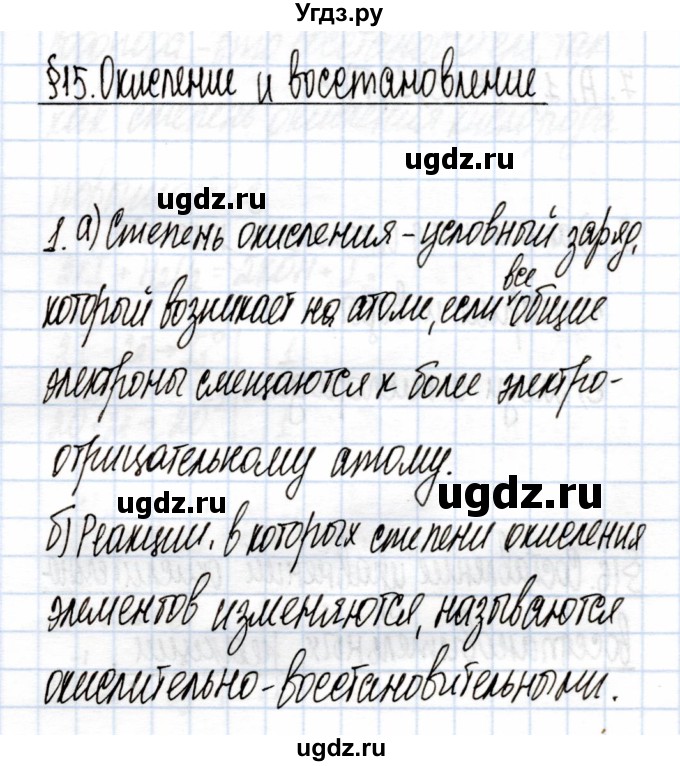 Угдз.ру
§15. Окисление и восстановление
ugdz.ru
ugdz.ru
1. а) Степень окисления – условный заряд,
который возникает на атоме, если все общие
электроны смещаются к более электро-
отрицательному атому.
ugdz.ru
ugdz.ru
б) Реакции, в которых степени окисления
элементов изменяются, называются
окислительно-восстановительными.
ugdz.ru